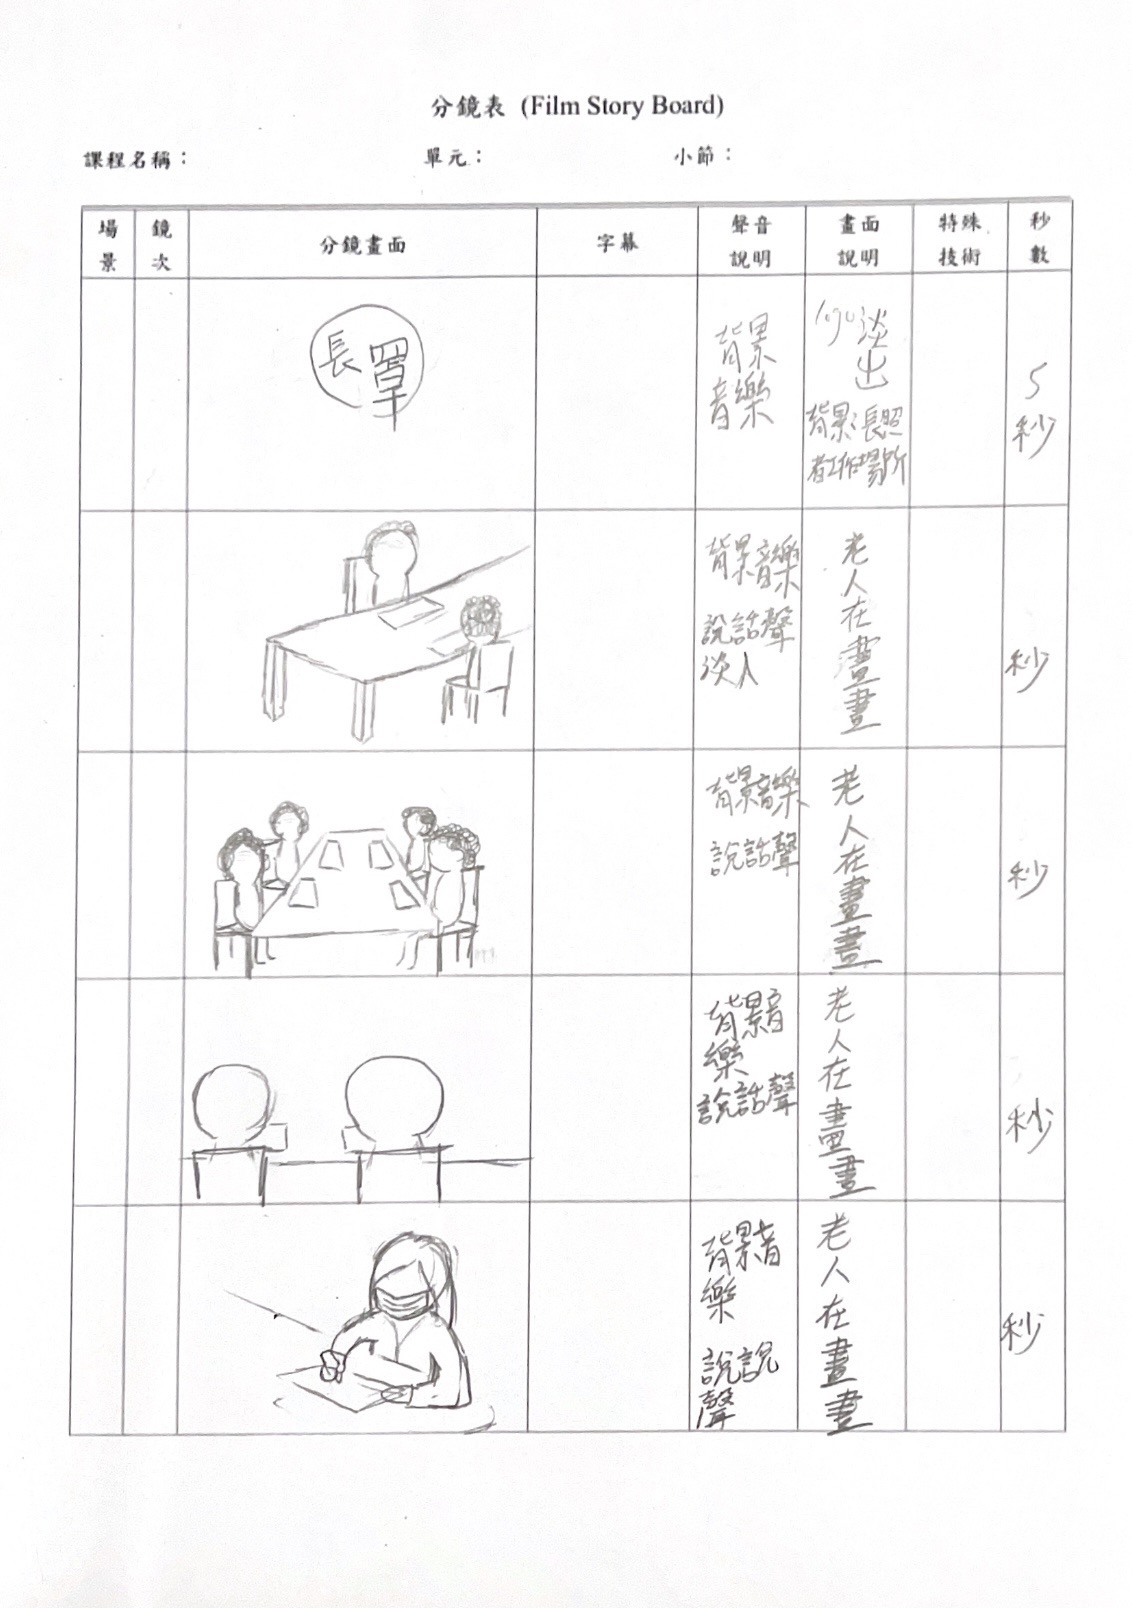 分鏡表 (Film Story Board)
課程名稱：
單元：
小節：
場景
鏡次
分鏡畫面
字幕
聲音說明
畫面說明
特殊技術
秒數
長罩
背景
音樂
logo淡出
背景長照
者工作場所
5秒
背景音樂
說話聲
淡入
老人在畫畫
秒
背景音樂
說話聲
老人在畫畫
秒
背景音
樂
說話聲
老人在畫畫
秒
背景音
樂
說說
聲
老人在畫畫
秒